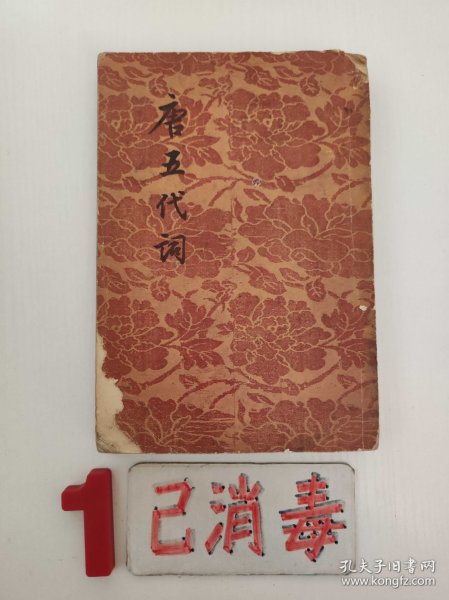 唐五代词
1
已消毒
孔夫子旧书网
www.kongfz.com